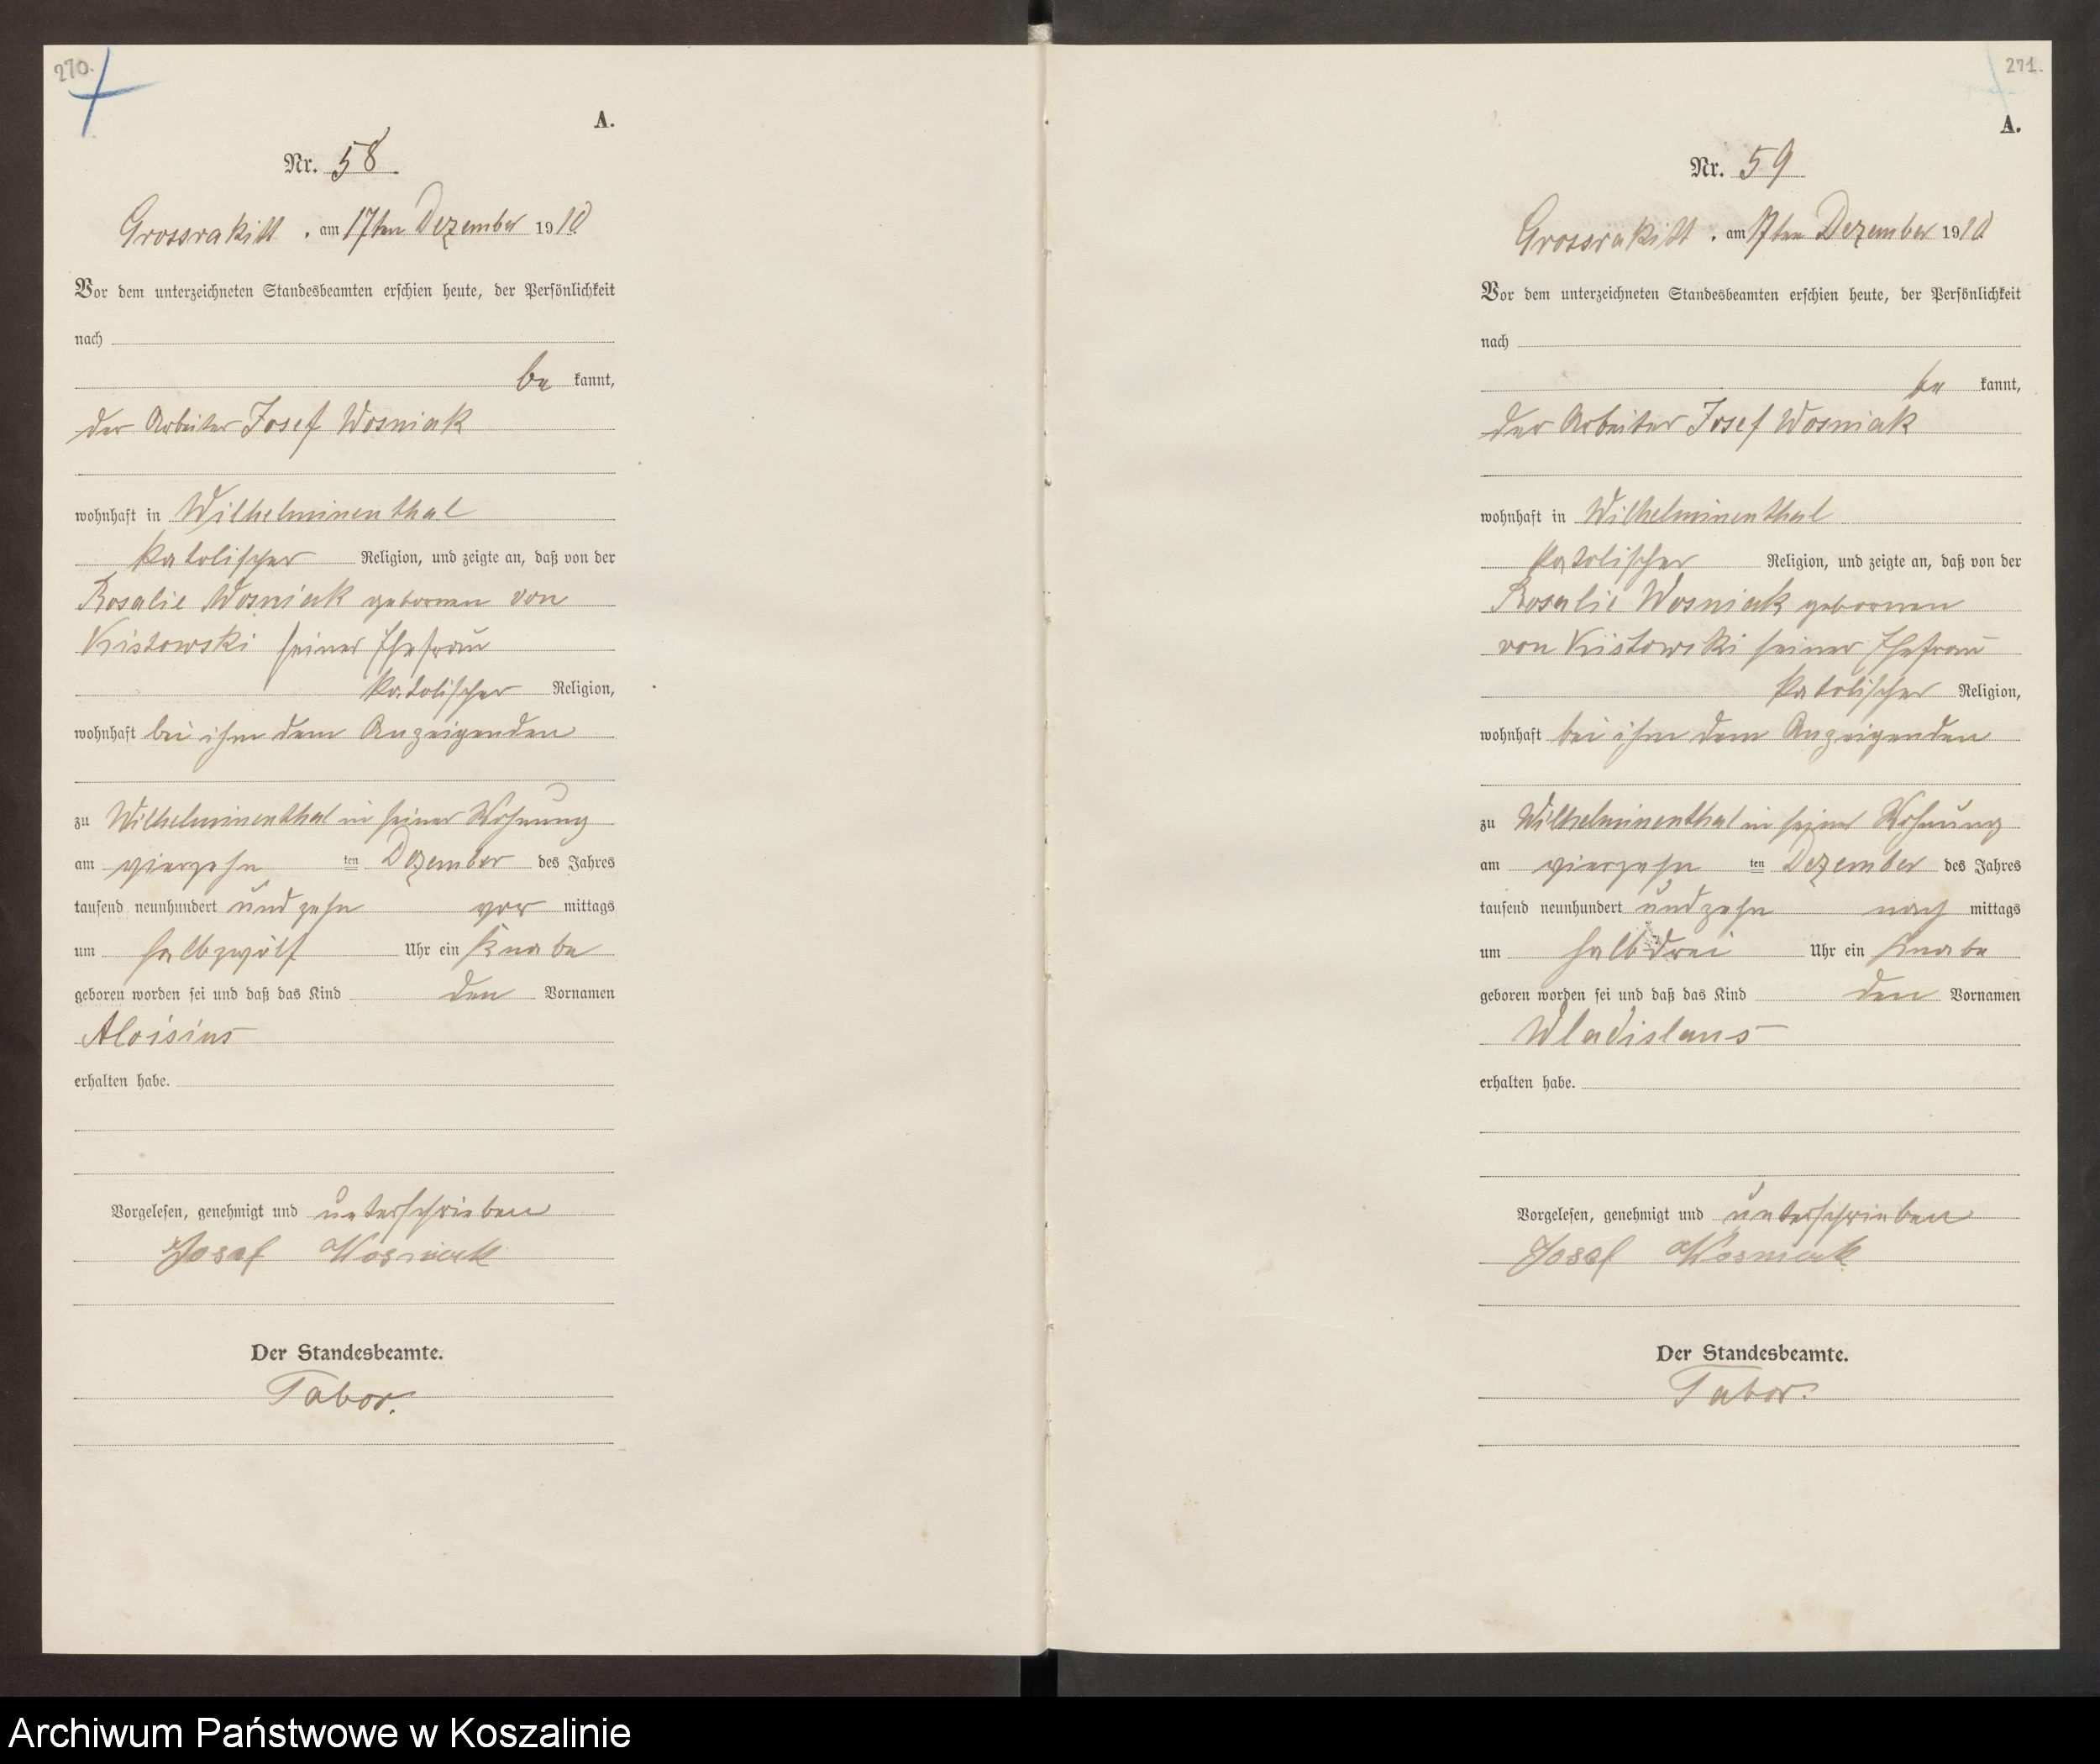 270.
A.
Nr. 58
Grossrakitt, am 17ten Dezember 1910
Vor dem unterzeichneten Standesbeamten erschien heute, der Persönlichkeit
nach
be kannt,
der Arbeiter Josef Wosniak
wohnhaft in Wilhelminenthal
katolischer Religion, und zeigte an, daß von der
Rosalie Wosniak gebornen von
Kistowski seiner Ehefrau
katolischer Religion,
wohnhaft bei ihm dem Anzeigenden
zu Wilhelminenthal in seiner Wohnung
am vierzehn ten Dezember des Jahres
tausend neunhundert und zehn vor mittags
um halb zwölf Uhr ein Knabe
geboren worden sei und daß das Kind den Vornamen
Aloisius
erhalten habe.
Vorgelesen, genehmigt und unterschrieben
Josef Wosniak
Der Standesbeamte.
Tabor.
271.
A.
Nr. 59
Grossrakitt, am 17ten Dezember 1910
Vor dem unterzeichneten Standesbeamten erschien heute, der Persönlichkeit
nach
be kannt,
der Arbeiter Josef Wosniak
wohnhaft in Wilhelminenthal
katolischer Religion, und zeigte an, daß von der
Rosalie Wosniak gebornen
von Kistowski seiner Ehefrau
katolischer Religion,
wohnhaft bei ihm dem Anzeigenden
zu Wilhelminenthal in seiner Wohnung
am vierzehn ten Dezember des Jahres
tausend neunhundert und zehn nach mittags
um halb drei Uhr ein Knabe
geboren worden sei und daß das Kind den Vornamen
Wladislaus
erhalten habe.
Vorgelesen, genehmigt und unterschrieben
Josef Wosniak
Der Standesbeamte.
Tabor.
Archiwum Państwowe w Koszalinie